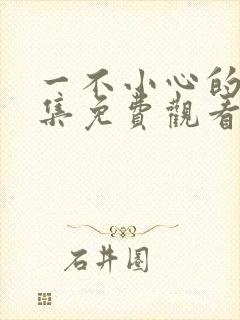 一不小心的
集免費觀看
石井圈